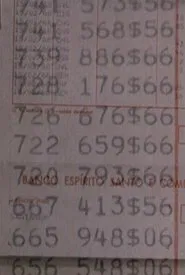 573$56
741 568$56
739 886$66
728 176$66
728 676$66
722 659$66
793$66
BANCO ESPIRITO SANTO E COM
7 413$56
.665 948$06
656 548$06